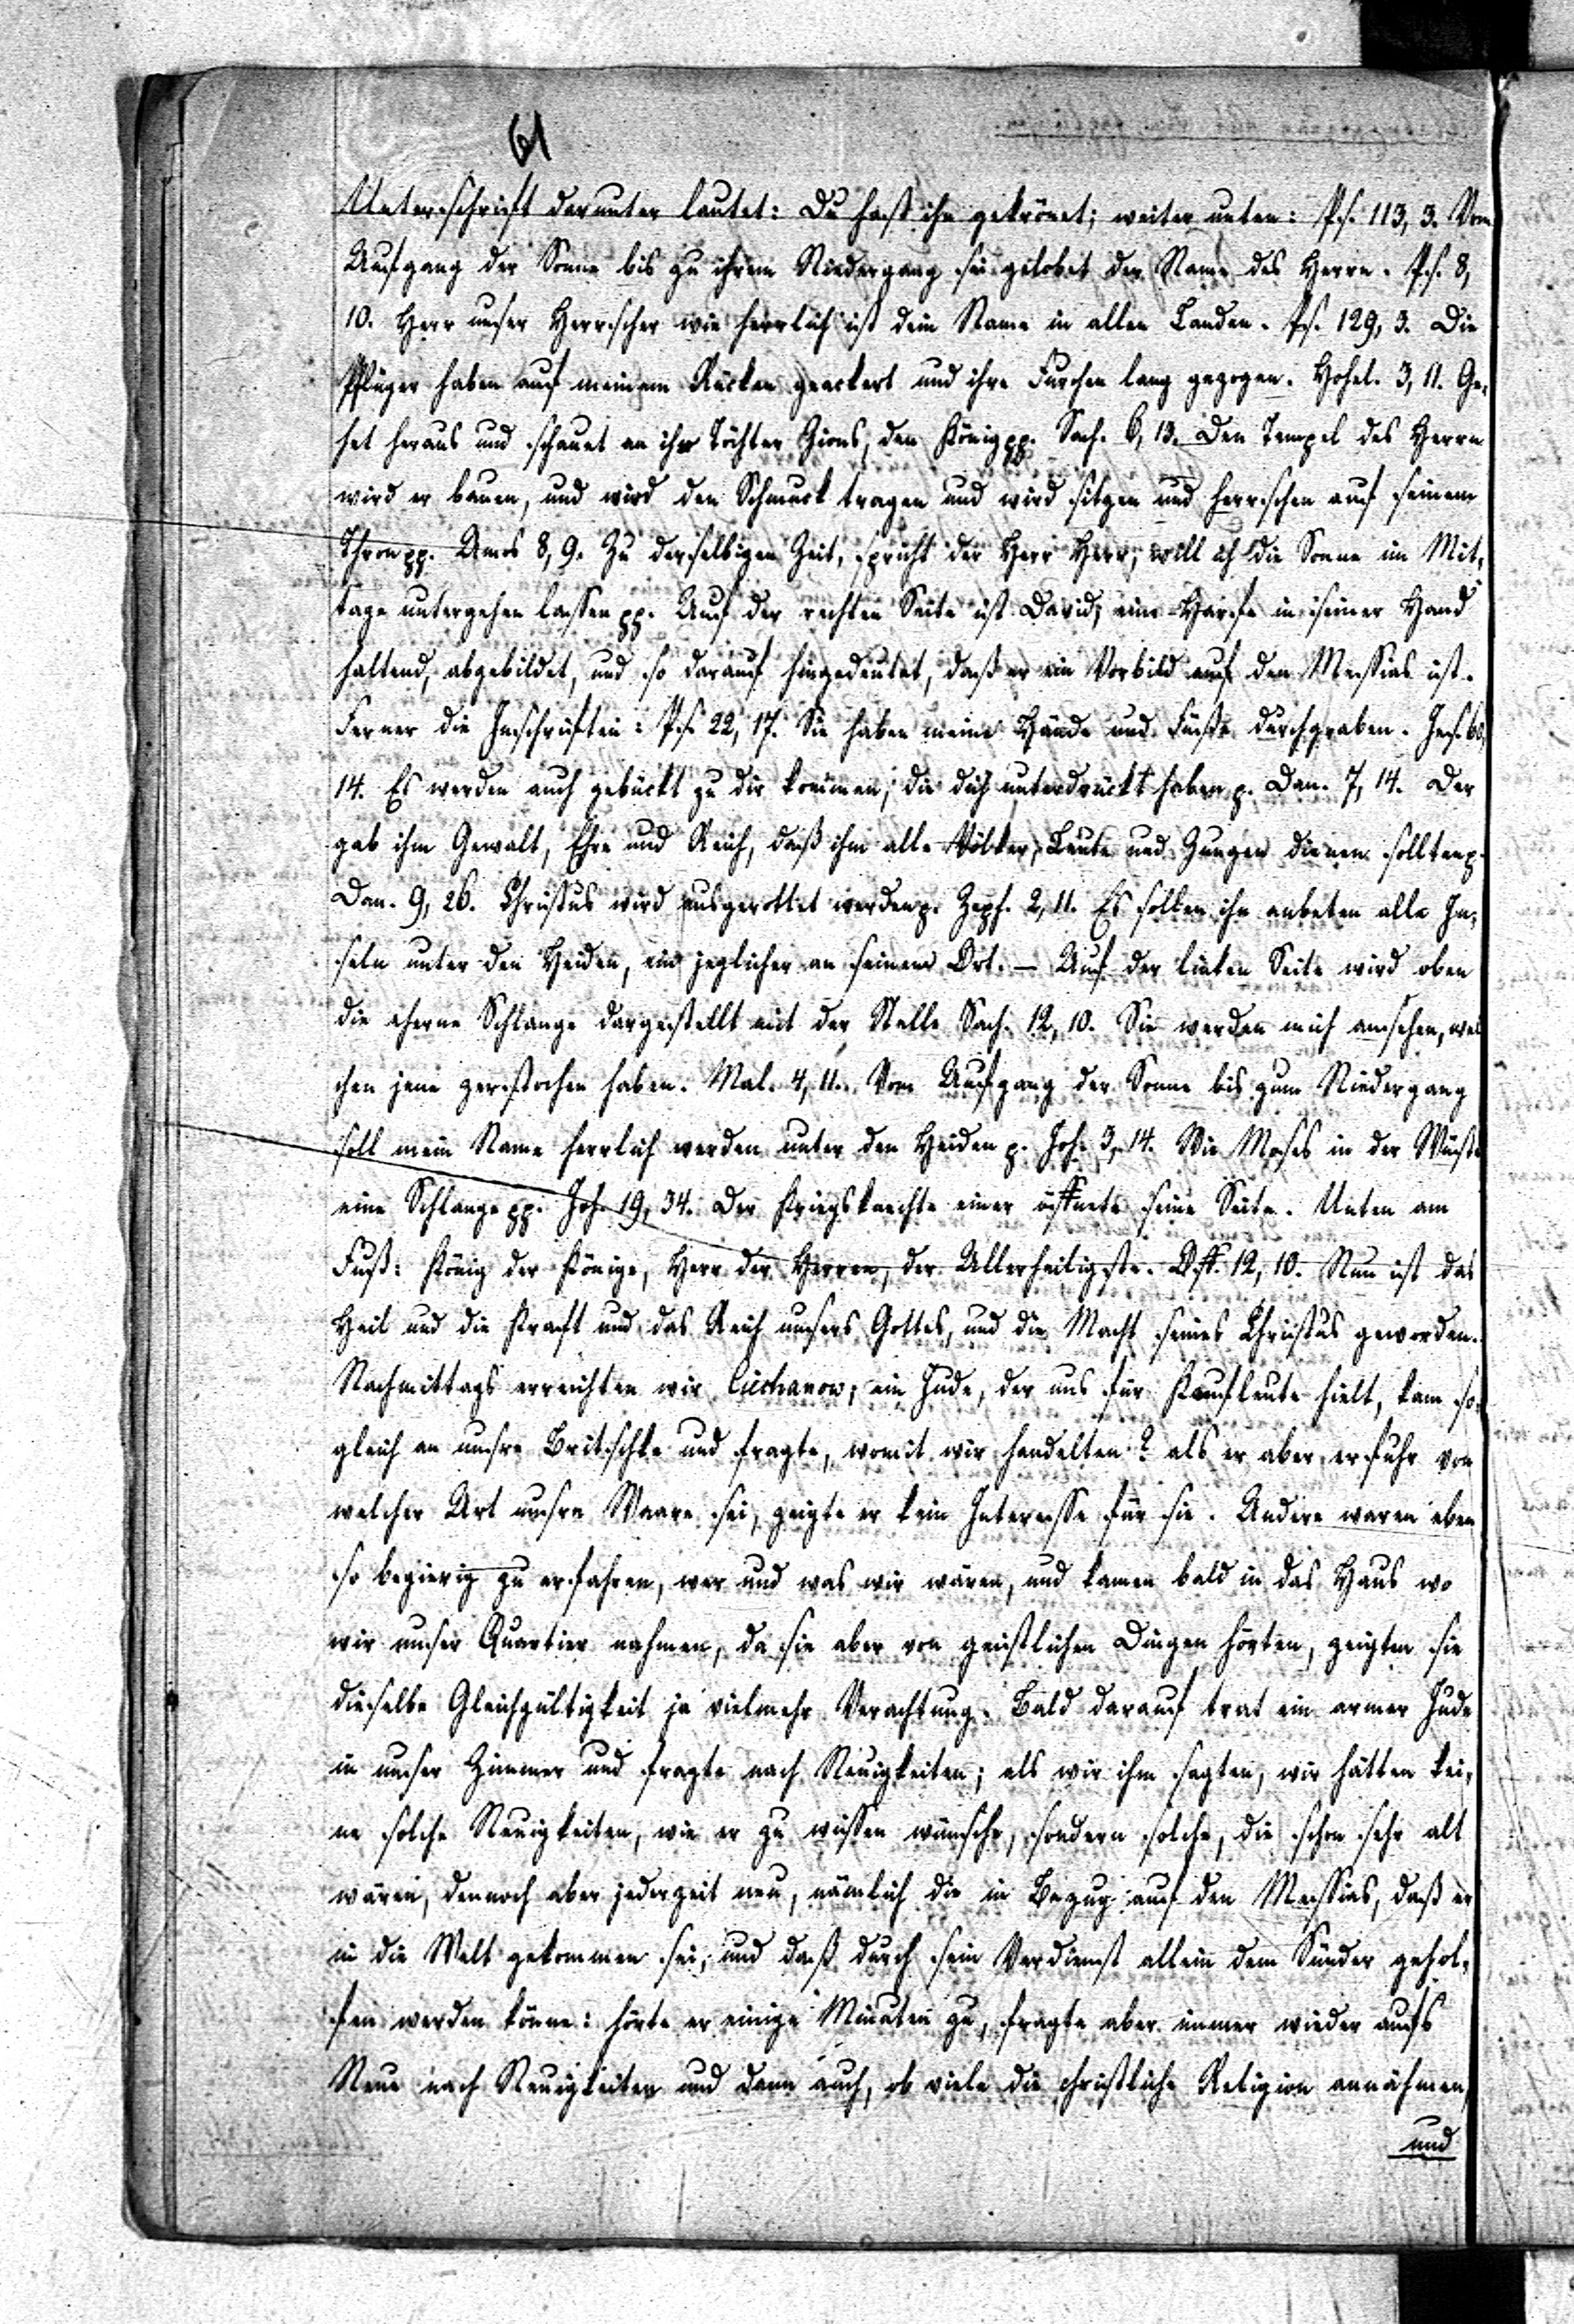 61
Unterschrift darunter lautet: Du hast ihn gekrönet; weiter unten: Ps. 113, 3. Vom
Aufgang der Sonne bis zu ihrem Niedergang sei gelobet der Name des Herrn. Ps. 8,
10. Herr unser Herrscher wie herrlich ist dein Name in allen Landen. Ps. 129, 3. Die
Pflüger haben auf meinem Rücken geackert und ihre Furchen lang gezogen. Hohel. 3, 11. Ge-
het heraus und schauet an ihr Töchter Zions, den König pp. Sach. 6, 13. Den Tempel des Herrn
wird er bauen, und wird den Schmuck tragen und wird sitzen und herrschen auf seinem
Thron pp. Amos 8, 9. Zu derselbigen Zeit, spricht der Herr Herr, will ich die Sonne im Mit-
tage untergehen lassen pp. Auf der rechten Seite ist David, eine Harfe in seiner Hand
haltend, abgebildet, und so darauf hingedeutet, daß er ein Vorbild auf den Messias ist.
Ferner die Inschriften: Ps. 22, 17. Sie haben meine Hände und Füße durchgraben. Jes. 60,
14. Es werden auch gebückt zu dir kommen, die dich unterdrückt haben p. Dan. 7, 14. Der
gab ihm Gewalt, Ehre und Reich, daß ihm alle Völker, Leute und Zungen dienen sollten p.
Dan. 9, 26. Christus wird ausgerottet werden p. Zeph. 2, 11. Es sollen ihn anbeten alle In-
seln unter den Heiden, ein jeglicher an seinem Ort. — Auf der linken Seite wird oben
die eherne Schlange dargestellt mit der Stelle Sach. 12, 10. Sie werden mich ansehen, wel
chen jene zerstochen haben. Mal. 4, 11. Vom Aufgang der Sonne bis zum Niedergang
soll mein Name herrlich werden unter den Heiden p. Joh. 3, 14. Wie Moses in der Wüste
eine Schlange pp. Joh. 19, 34. Der Kriegsknechte einer öffnete seine Seite. Unten am
Fuß: König der Könige, Herr der Herren, der Allerheiligste. Off. 12, 10. Nun ist das
Heil und die Kraft und das Reich unsers Gottes, und die Macht seines Christus geworden.
Nachmittags erreichten wir Ciechanow; ein Jude, der uns für Kaufleute hielt, kam so-
gleich an unsre Britschke und fragte, womit wir handelten? als er aber erfuhr von
welcher Art unsre Waare sei, zeigte er kein Interesse für sie. Andere waren eben
so begierig zu erfahren, wer und was wir wären, und kamen bald in das Haus wo
wir unser Quartier nahmen, da sie aber von geistlichen Dingen hörten, zeigten sie
dieselbe Gleichgültigkeit ja vielmehr Verachtung. Bald darauf trat ein armer Jude
in unser Zimmer und fragte nach Neuigkeiten; als wir ihm sagten, wir hätten kei-
ne solche Neuigkeiten, wie er zu wissen wünsche, sondern solche, die schon sehr alt
wären, dennoch aber jederzeit neu, nämlich die in Bezug auf den Messias, daß er
in die Welt gekommen sei, und daß durch sein Verdienst allein dem Sünder gehol-
fen werden könne: hörte er einige Minuten zu, fragte aber immer wieder aufs
Neue nach Neuigkeiten und dann auch, ob viele die christliche Religion annähmen,
und